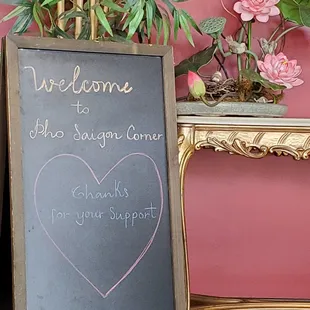 Welcome
to
Pho Saigon Corner
Thanks
for your Support